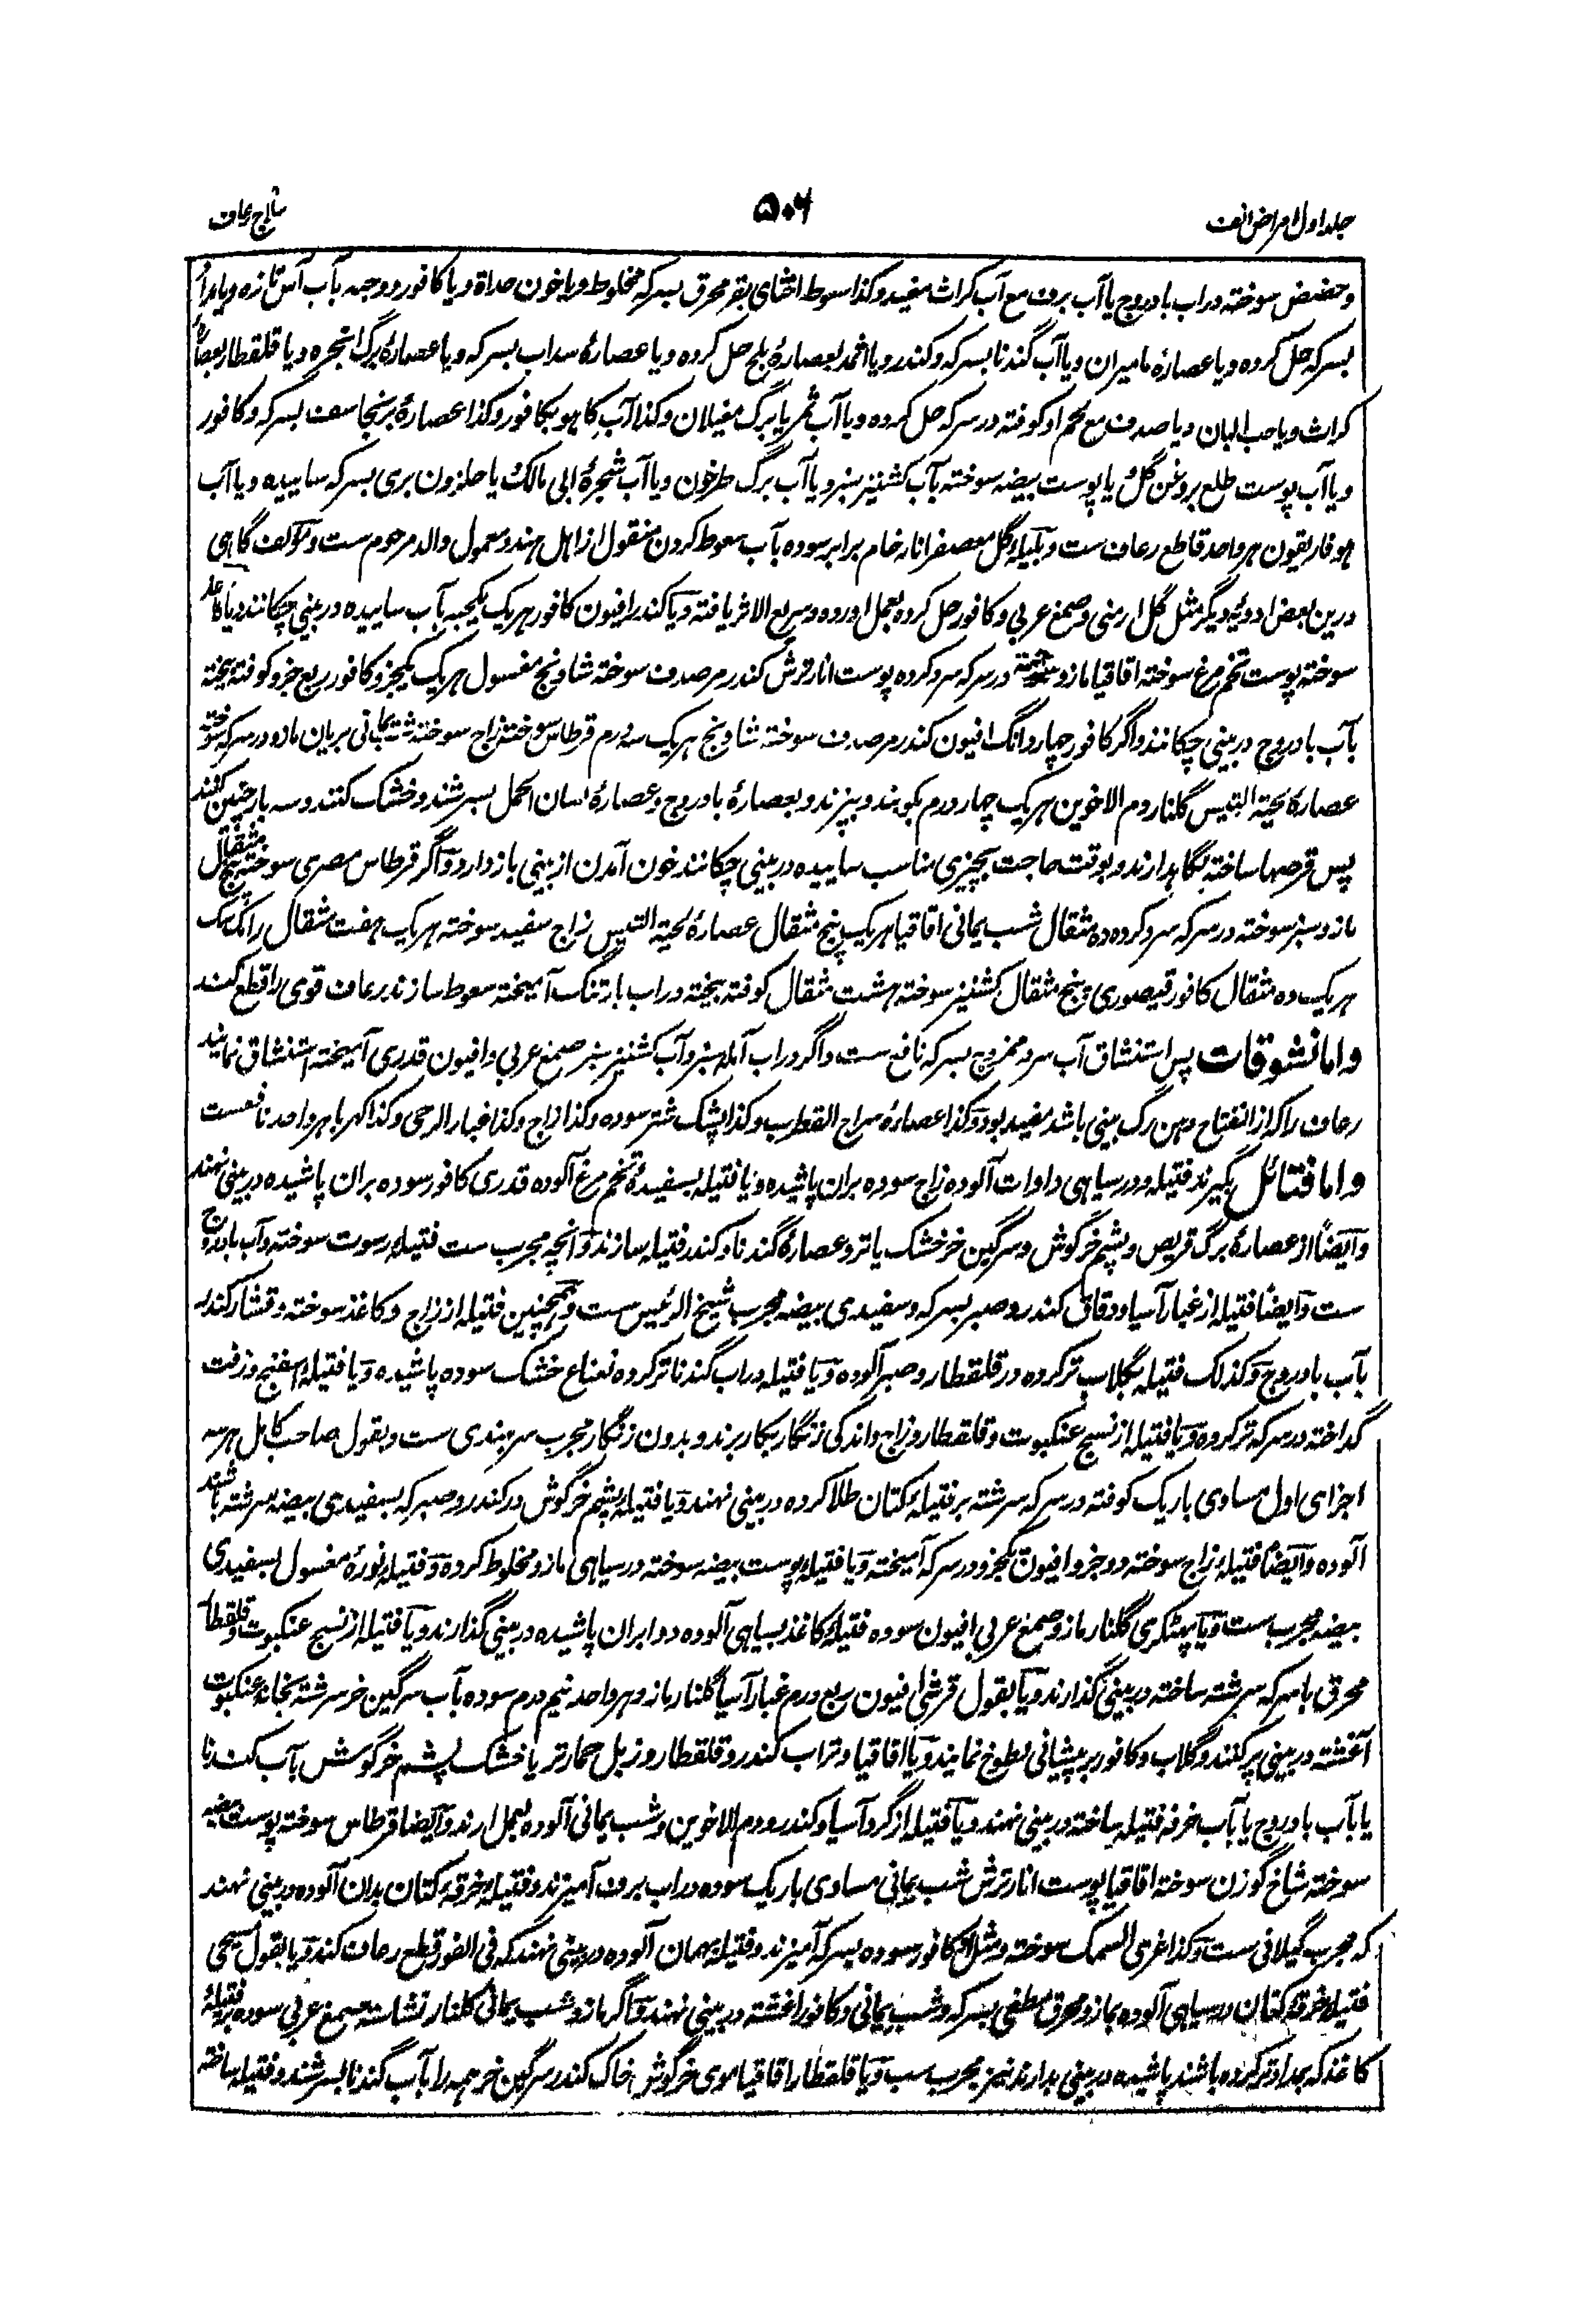 جلد اول امراض انف
۵۰۶
علاج رعاف
وحضض سوخته دراب بادروج یا آب برف مع آب کراث مفید و کذا سعوط اخثای بقر محرق بسرکه مخلوط و یا خون حداة و یا کافور و وجبه بآب آس تازه و یا
بسرکه حل کرده و یا عصارهٔ مامیران و یا آب گندنا بسرکه و کندر و یا اثمد بعصارهٔ بلح حل کرده و یا عصارهٔ سداب بسرکه و یا عصارهٔ برگ انجره و یا قلقطار بعصارهٔ
کراث و یا حب البان و یا صدف مع لحم او کوفته در سرکه حل کرده و یا آب ثمر یا برگ مغیلان و کذا آب کاهو بکافور و کذا عصارهٔ برنجاسف بسرکه و کافور
و یا آب پوست طلع بروغن گل یا پوست بیضه سوخته بآب کشنیز سبز و یا آب برگ طرخون و یا آب شجرهٔ ابی مالک یا حلزون بری بسرکه ساییده و یا آب
هوفاریقون هر واحد قاطع رعاف ست و بلیله گل معصفر انار خام برابر سوده بآب سعوط کردن منقول از اهل هند و معمول والد مرحوم ست و مؤلف گاهی
درین بعض ادویه دیگر مثل گل ارمنی و صمغ عربی و کافور حل کرده بعمل اورده و سریع الاثر یافته و یا کندر افیون کافور هر یک یکحبه بآب ساییده در بینی چکانند و یا کاغذ
سوخته پوست تخم مرغ سوخته اقاقیا مازو سوخته در سرکه سرد کرده پوست انار ترش کندر مر صدف سوخته شاونج مغسول هر یک یکجزو کافور ربع جزو کوفته بیخته
بآب بادروج در بینی چکانند و اگر کافور چهار دانگ افیون کندر مر صدف سوخته شاونج هر یک سه درم قرطاس سوخته زاج سوخته شب یمانی بریان مازو در سرکه سوخته
عصارهٔ لحیة التیس گلنار دم الاخوین هر یک چهار درم بکوبند و ببیزند و بعصارهٔ بادروج و عصارهٔ لسان الحمل بسرشند و خشک کنند و سه بار چنین کنند
پس قرصها ساخته نگاهدارند و بوقت حاجت بچیزی مناسب ساییده در بینی چکانند خون آمدن از بینی باز دارد و اگر قرطاس مصری سوخته پنج مثقال
مازو سبز سوخته در سرکه سرد کرده ده مثقال شب یمانی اقاقیا هر یک پنج مثقال عصارهٔ لحیة التیس زاج سفید سوخته هر یک هفت مثقال رامک
هر یک ده مثقال کافور قیصوری پنج مثقال کشنیز سوخته هشت مثقال کوفته بیخته دراب بارتنگ آمیخته سعوط سازند رعاف قوی را قطع کند
واما نشوقات پس استنشاق آب سرد ممزوج بسرکه نافع ست و اگر دراب آمله سبز و آب کشنیز سبز صمغ عربی و افیون قدری آمیخته استنشاق نمایند
رعاف را که از انفتاح دهن رگ بینی باشد مفید بود و کذا عصارهٔ سراج القطرب و کذا پشک شتر سوده و کذا زاج و کذا غبار الرحی و کذا کهربا هر واحد نافعست
واما فتائل بگیرند فتیله و در سیاهی دوات آلوده زاج سوده بران پاشیده و یا فتیله بسفیدهٔ تخم مرغ آلوده قدری کافور سوده بران پاشیده در بینی نهند
وایضاً از عصارهٔ برگ قریص و پشم خرگوش و سرگین خر خشک یا تر و عصارهٔ گندنا و کندر فتیله سازند و انچه مجرب ست فتیله رسوت سوخته و آب بادروج
ست وایضاً فتیله از غبار آسیا و دقاق کندر و صبر بسرکه و سفیدی بیضه مجرب شیخ الرئیس ست و همچنین فتیله از زاج و کاغذ سوخته و قشار کندر
بآب بادروج و کذلک فتیله بگلاب تر کرده در قلقطار و صبر آلوده و یا فتیله دراب گندنا تر کرده نعناع خشک سوده پاشیده و یا فتیله اسفنج و زفت
گداخته در سرکه تر کرده و یا فتیله از نسج عنکبوت و قلقطار و زاج و اندکی زنگار بکار برند و بدون زنگار مجرب سرهندی ست و بقول صاحب کامل هر سه
اجزای اول مساوی باریک کوفته در سرکه سرشته بر فتیله کتان طلا کرده در بینی نهند و یا فتیله پشم خرگوش در کندر و صبر که بسفیدی بیضه سرشته باشند
آلوده وایضاً فتیله زاج سوخته دو جزو افیون یکجزو در سرکه آمیخته و یا فتیله پوست بیضه سوخته در سیاهی مازو مخلوط کرده و فتیله نورهٔ مغسول بسفیدی
بیضه مجرب ست و یا پهٹکری گلنار مازو صمغ عربی افیون سوده فتیله کاغذ بسیاهی آلوده دوا بران پاشیده در بینی گذارند و یا فتیله از نسج عنکبوت و قلقطار
محرق با سرکه سرشته ساخته در بینی گذارند و یا بقول قرشی افیون ربع درم غبار آسیا گلنار مازو هر واحد نیم درم سوده بآب سرگین خر سرشته بخانه عنکبوت
آغشته در بینی پر کنند و گلاب و کافور بر پیشانی لطوخ نمایند و یا اقاقیا و تراب کندر و قلقطار و زبل حمار تر یا خشک پشم خرگوش بآب گندنا
یا بآب بادروج یا بآب خرفه فتیله ساخته در بینی نهند و یا فتیله از گرد آسیا و کندر و دم الاخوین و شب یمانی آلوده بعمل ارند وایضا قرطاس سوخته پوست بیضه
سوخته شاخ گوزن سوخته اقاقیا پوست انار ترش شب یمانی مساوی باریک سوده دراب برف آمیزند و فتیله خرقه کتان بدان آلوده در بینی نهند
که مجرب گیلانی ست و کذا غری السمک سوخته و مثل آن کافور سوده بسرکه آمیزند و فتیله بهمان آلوده در بینی نهند که فی الفور قطع رعاف کند و یا بقول مسیحی
فتیله خرقه کتان در سیاهی آلوده بمازو محرق مطفی بسرکه و شب یمانی و کافور اغشته در بینی نهند و اگر مازو شب یمانی گلنار نشاسته صمغ عربی سوده بر فتیلهٔ
کاغذ که بمداد تر کرده باشند پاشیده در بینی بدارند نیز مجرب ست و یا قلقطار اقاقیا موی خرگوش خاک کندر سرگین خر همه را بآب گندنا بسرشند و فتیله ساخته